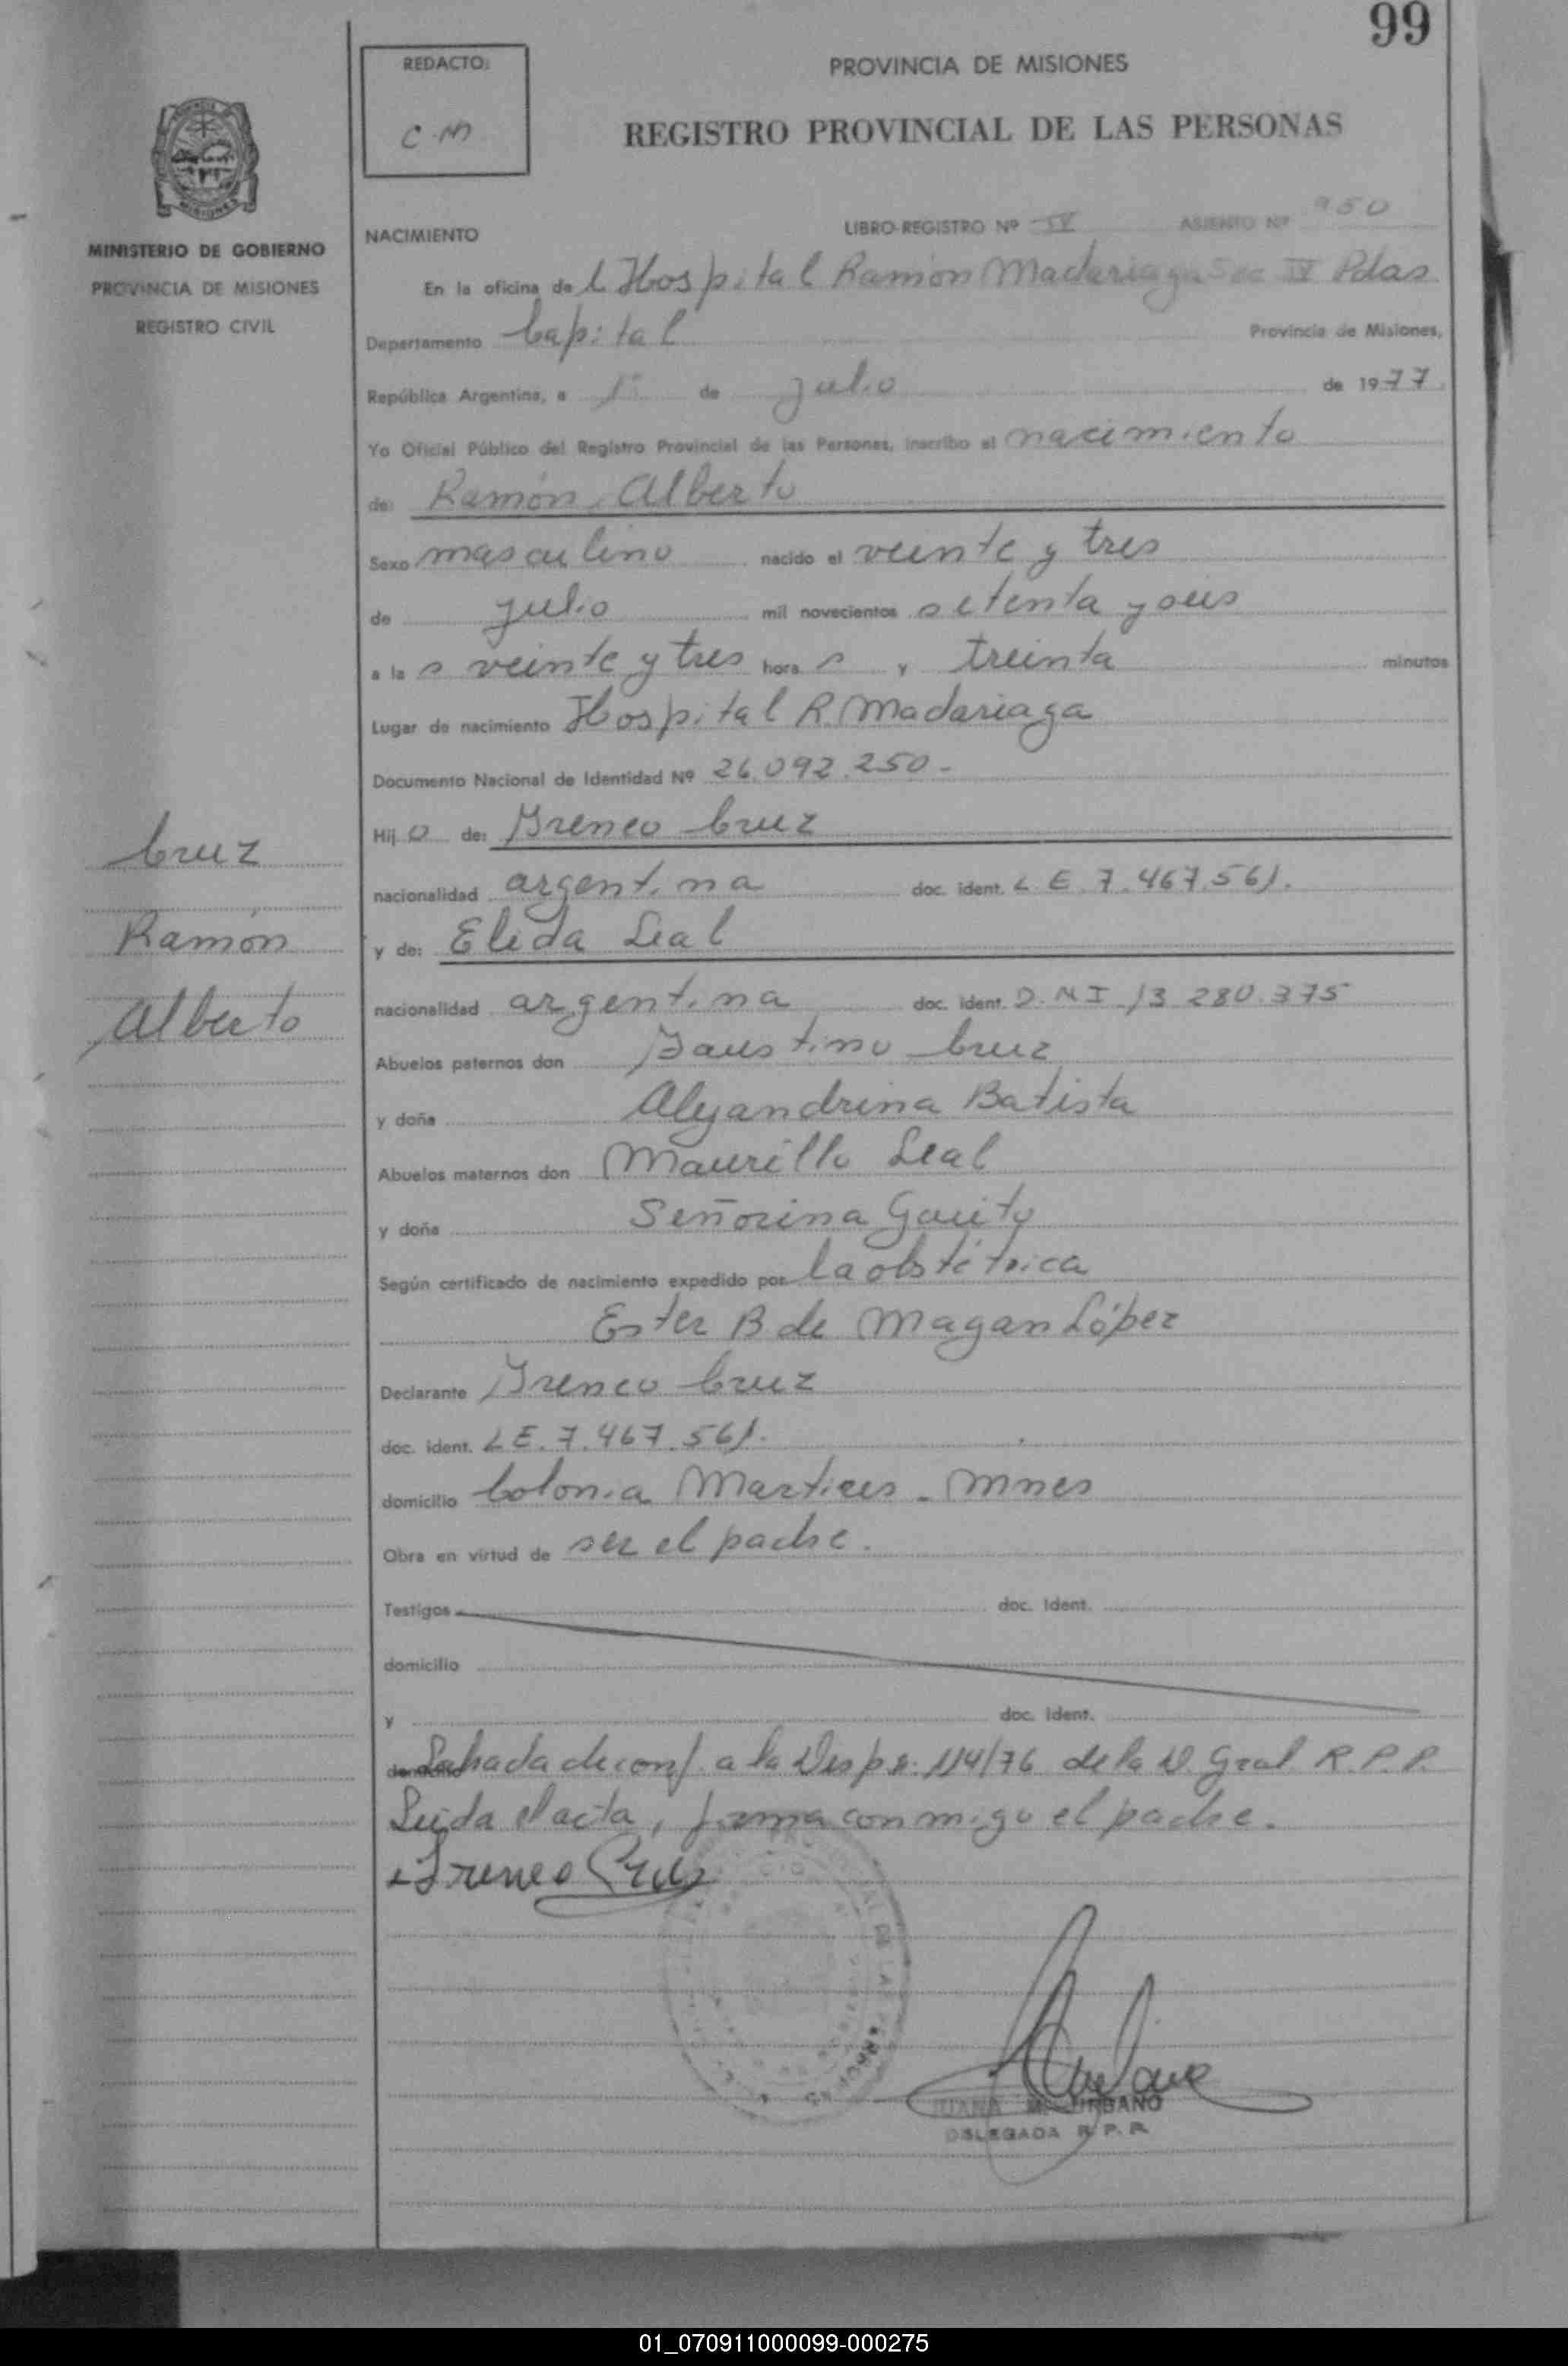 99
REDACTO:
C.M
PROVINCIA DE MISIONES
REGISTRO PROVINCIAL DE LAS PERSONAS
MISIONES
MINISTERIO DE GOBIERNO
PROVINCIA DE MISIONES
REGISTRO CIVIL
NACIMIENTO LIBRO-REGISTRO Nº IV ASIENTO Nº 950
En la oficina de l Hospital Ramón Madariaga Sec IV Pdas
Departamento Capital Provincia de Misiones,
República Argentina, a 1º de julio de 1977.
Yo Oficial Público del Registro Provincial de las Personas, inscribo el nacimiento
de: Ramón Alberto
Sexo masculino nacido el veinte y tres
de julio mil novecientos setenta y seis
a la s veinte y tres hora s y treinta minutos
Lugar de nacimiento Hospital R. Madariaga
Documento Nacional de Identidad Nº 26.092.250-
Hij o de: Ireneo Cruz
nacionalidad argentina doc. ident. L E 7.467.561.
y de: Elida Leal
nacionalidad argentina doc. ident. D.N I 13 280.375
Abuelos paternos don Faustino Cruz
y doña Alejandrina Batista
Abuelos maternos don Maurillo Leal
y doña Señorina
Según certificado de nacimiento expedido por la obstétrica
Ester B de Magan López
Declarante Ireneo Cruz
doc. ident. L E. 7.467.561.
domicilio Colonia Martires - Mnes
Obra en virtud de ser el padre.
Testigos doc. Ident.
domicilio
y doc. Ident.
domicilio de conf. a la Disp. 114/76 de la D. Gral R.P.P.
Leida el acta, firma conmigo el padre.
Ireneo Cruz
Cruz
Ramón
Alberto
JUANA M. URBANO
DELEGADA R.P.P.
01_070911000099-000275